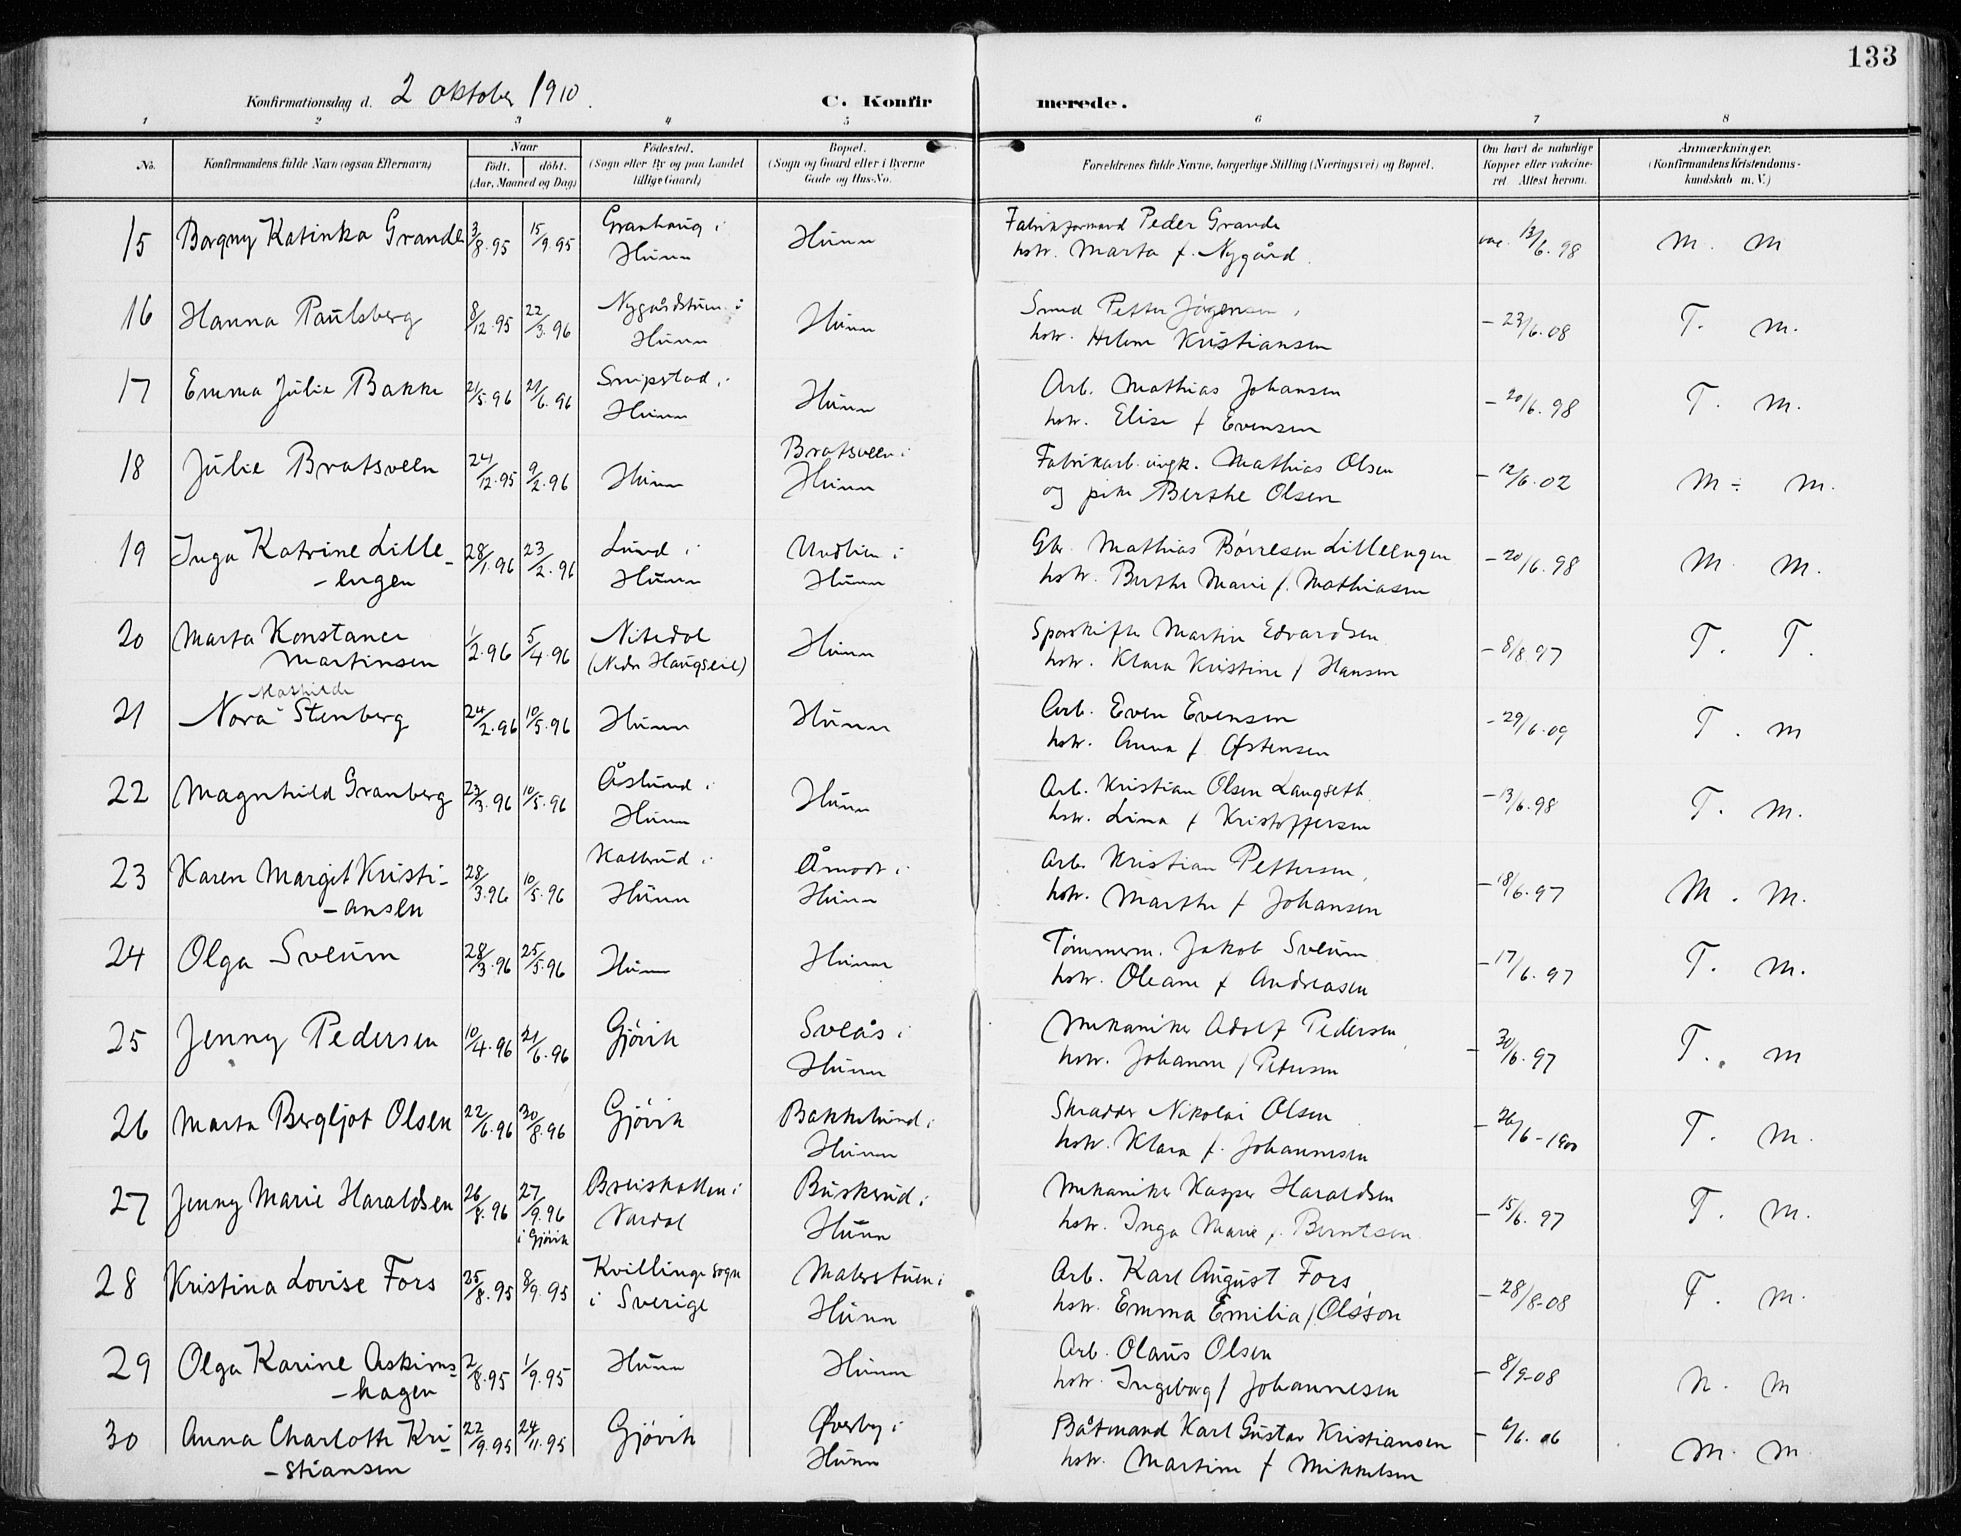 133
Konfirmationsdag d. 2 oktober 1910.
C. Konfirmerede.
1 2 3 4 5 6 7 8
No. Konfirmandens fulde Navn (ogsaa Efternavn) Naar født. døbt. (Aar, Maaned og Dag) Fødested. (Sogn eller By og paa Landet tillige Gaard) Bopæl. (Sogn og Gaard eller i Byerne Gade og Hus-No. Forældrenes fulde Navne, borgerlige Stilling (Næringsvei) og Bopæl. Om havt de naturlige Kopper eller vakcineret. Attest herom. Anmærkninger. (Konfirmandens Kristendomskundskab m. V.)
15 Borgny Katinka Grande 3/8.95 15/9.95 Granhaug i Hunn Hunn Fabrikformand Peder Grande vac. 13/6.98 M. M
hstr. Marta f. Nygård
16 Hanna Paulsberg 8/12.95 22/3.96 Nygårdstuen i Hunn Hunn Smed Petter Jörgensen, - 23/6.08 T. M.
hstr. Helene Kristiansen
17 Emma Julie Bakke 21/5.96 21/6.96 Snipstad i Hunn Hunn Arb. Mathias Johansen - 20/6.98 T. M.
hstr. Elise f Evensen
18 Julie Bratsveen 24/12.95 9/2.96 Hunn Bratsveen i Hunn Fabrikarb. ungk. Mathias Olsen - 12/6.02 M÷ M.
og pike Berthe Olsen
19 Inga Katrine Lille- 28/1.96 23/2.96 Lund i Hunn Hunn Gbr. Mathias Börresen Lilleengen - 20/6.98 M. M.
-engen hstr. Berthe Marie f. Mathiasen
20 Marta Konstance 1/2.96 5/4.96 Nitedal (Nedr Haugseie) Hunn Sporskifter Martin Edvardsen - 8/8.97 T. T.
Martinsen hstr. Klara Kristine f Hansen
21 Nora Mathilde Stenberg 24/2.96 10/5.96 Hunn Hunn Arb. Even Evensen - 29/6.09 T. M
hstr. Anna f. Østensen
22 Magnhild Granberg 23/3.96 10/5.96 Åslund i Hunn Hunn Arb. Kristian Olsen Langseth - 13/6.98 T. M.
hstr. Lina f Kristoffersen
23 Karen Margit Kristi- 28/3.96 10/5.96 Kalrud i Hunn Åmodt i Hunn Arb. Kristian Pettersen, - 18/6.97 M. M.
-ansen hstr. Marthe f Johansen
24 Olga Sveum 28/3.96 25/5.96 Hunn Hunn Tömmerm. Jakob Sveum - 17/6.97 T. M.
hstr. Oleane f Andreasen
25 Jenny Pedersen 10/4.96 21/6.96 Gjövik Sveås i Hunn Mekaniker Adolf Pedersen, - 30/6.97 T. M
hstr. Johanne f Petersen
26 Marta Bergljot Olsen 22/6.96 30/8.96 Gjövik Bakkelund i Hunn Skrædder Nikolai Olsen - 26/6-1900 T. M.
hstr. Klara f. Johannesen
27 Jenny Marie Haraldsen 26/8.96 27/9.96 i Gjövik Breiskallen i Vardal Buskerud i Hunn Mekaniker Kasper Haraldsen - 15/6.97 T. M.
hstr. Inga Marie f. Berntsen
28 Kristina Lovise Fors 25/8.95 8/9.95 Kvillinge sogn i Sverige Malerstuen i Hunn Arb. Karl August Fors - 28/8-08 T. M.
hstr. Emma Emilia f Olsson
29 Olga Karine Askims- 2/8.95 1/9.95 Hunn Hunn Arb. Olaus Olsen - 8/9-08 N. M
-hagen hstr. Ingeborg f Johannesen
30 Anna Charlotte Kri- 22/9.95 24/11.95 Gjövik Øverby i Hunn Båtmand Karl Gustav Kristiansen - 6/6.06 M. M.
-stiansen hstr. Martine f Mikkelsen